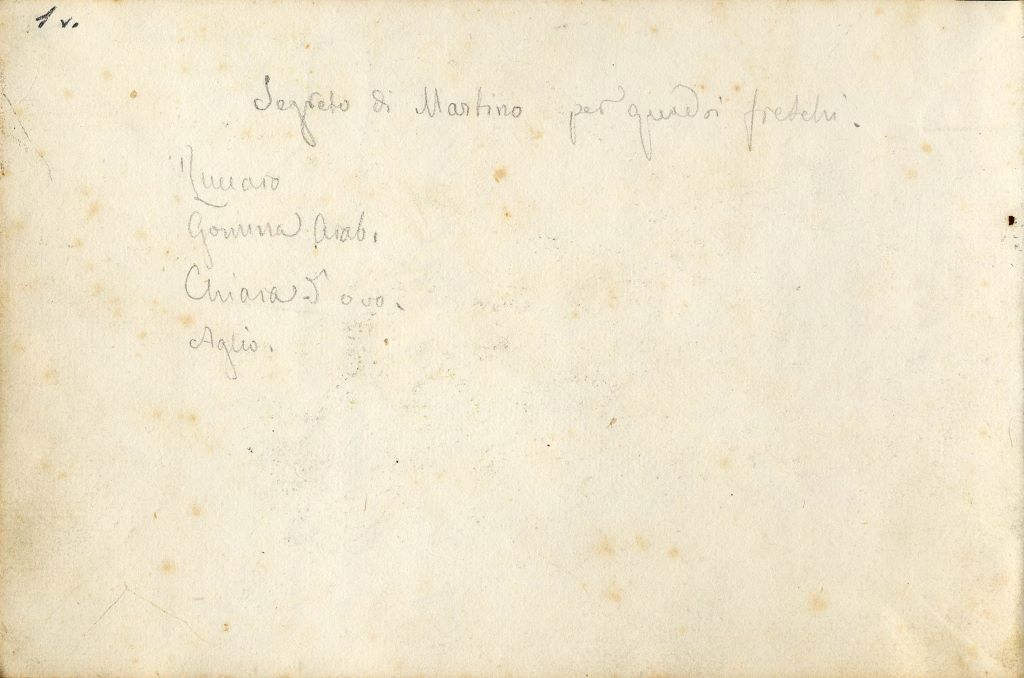 1 v.
Segreto di Martino per quadri freschi.
Zuccaro
Gomma Arab.
Chiara d'ovo.
Aglio.